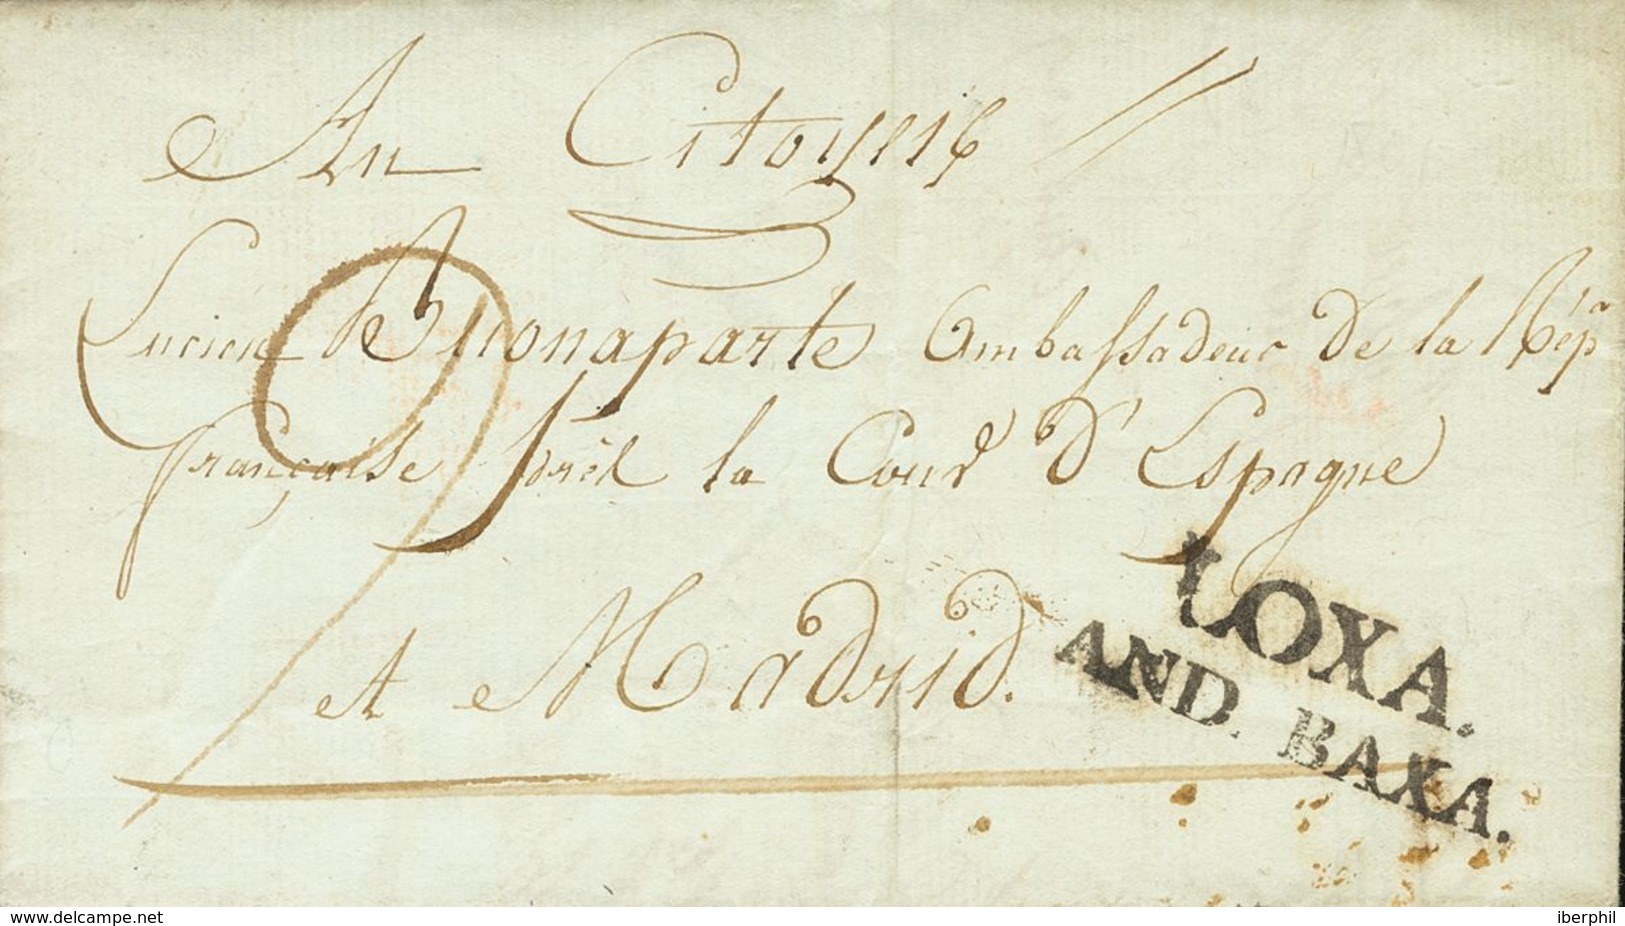 Au Citoyen
Lucien Buonaparte Ambassadeur de la Répᵃ
française près la Cour d'Espagne
et Madrid.
LOXA.
AND. BAXA.
www.delcampe.com
iberphil